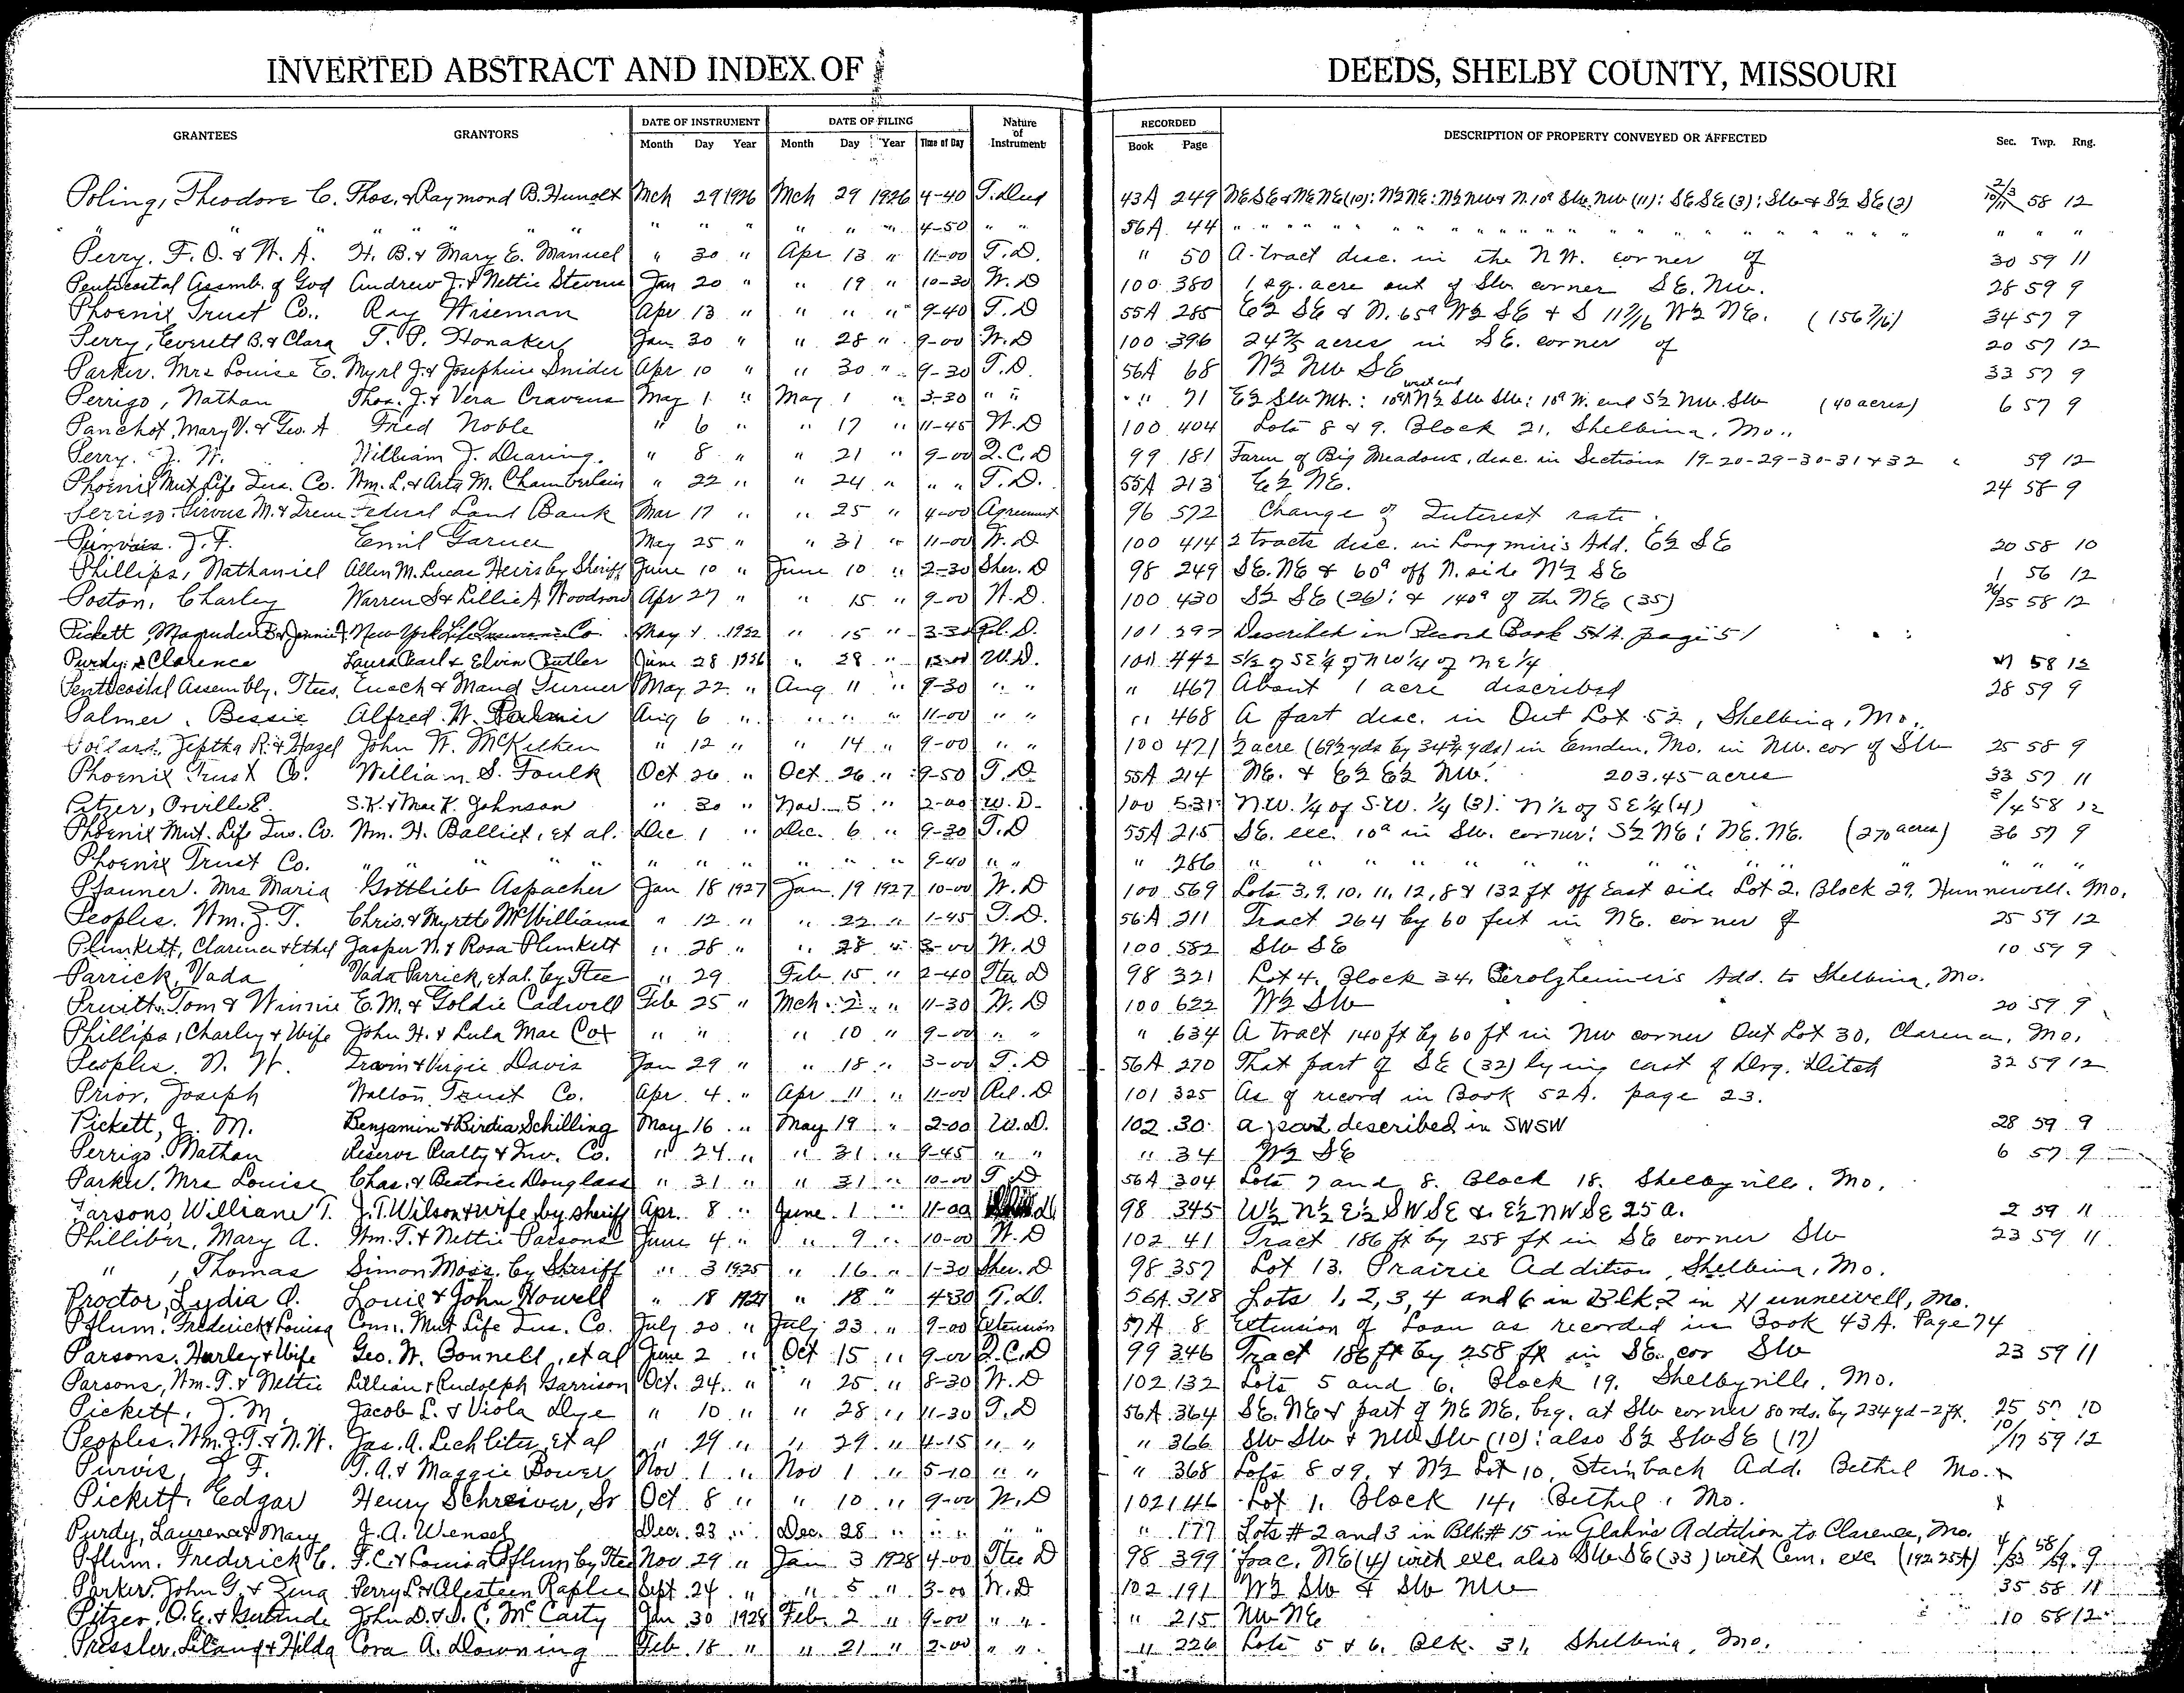 INVERTED ABSTRACT AND INDEX OF DEEDS, SHELBY COUNTY, MISSOURI
GRANTEES GRANTORS DATE OF INSTRUMENT DATE OF FILING Nature of Instrument RECORDED DESCRIPTION OF PROPERTY CONVEYED OR AFFECTED Sec. Twp. Rng.
Month Day Year Month Day Year Time of Day Book Page
Poling, Theodore C. Thos. & Raymond B. Hundt Mch 29 1926 Mch 29 1926 4-40 T. Deed 43A 249 NESE & NENE (10): N½NE: N½NW & N. 10ª SW. NW (11): SESE (3): SW & S½ SE (2) 2/3 10/11 58 12
" " " " " " " " " " " 4-50 " " 56A 44 " " " " " " " " " " " " "
Perry, F. O. & W. A. H. B. & Mary E. Manuel " 30 " Apr 13 " 11-00 T. D. " 50 A tract desc. in the NW. corner of 30 59 11
Pentecostal Assmb. of God Andrew J. & Nettie Stevens Jan 20 " " 19 " 10-30 W. D 100 380 1 sq. acre out of SW corner SE. NW. 28 59 9
Phoenix Trust Co., Ray Wiseman Apr 13 " " " " 9-40 T. D 55A 285 E½ SE & N. 65ª W½ SE & S 11 7/16 W½ NE. (156 7/16) 34 57 9
Perry, Everett B. & Clara T. P. Honaker Jan 30 " " 28 " 9-00 W. D 100 396 24⅔ acres in SE. corner of 20 57 12
Parker. Mrs Louise E. Myrl J. & Josephine Snider Apr 10 " " 30 " 9-30 T. D. 56A 68 N½ NW SE 33 57 9
Perrigo, Nathan Thos. J. & Vera Cravens May 1 " May 1 " 3-30 " " " 71 E½ SW NW.: 10ª west end N½ SW SW: 10ª W. end S½ NW. SW (40 acres) 6 57 9
Panchot, Mary V. & Geo. A Fred Noble " 6 " " 17 " 11-45 W. D 100 404 Lots 8 & 9. Block 21, Shelbina, Mo..
Perry. J. W. William J. Dearing. " 8 " " 21 " 9-00 Q. C. D 99 181 Farm of Big Meadows, desc. in Sections 19-20-29-30-31 & 32 59 12
Phoenix Mut Life Ins. Co. Wm. L. & Arta M. Chamberlain " 22 " " 24 " " " T. D. 55A 213 E½ NE. 24 58 9
Perrigo. M. & Irene Federal Land Bank Mar 17 " " 25 " 4-00 Agreement 96 572 Change of Interest rate.
Purvis. J. F. Emil Garner May 25 " " 31 " 11-00 W. D 100 414 2 tracts desc. in Longmire's Add. E½ SE 20 58 10
Phillips, Nathaniel Allen M. Lucas Heirs by Sheriff June 10 " June 10 " 2-30 Sher. D 98 249 SE. NE & 60ª off N. side N½ SE 1 56 12
Poston, Charley Warren S & Lillie A. Woodson Apr 27 " " 15 " 9-00 W. D. 100 430 S½ SE (26): & 140ª of the NE (35) 26/35 58 12
Pickett, Magruder B & Jennie J. New York Life Insurance Co. May 1 1922 " 15 " 3-30 Rel. D. 101 297 Described in Record Book 51A. page 51
Purdy, Clarence Laura Pearl & Elvin Cutler June 28 1926 " 28 " 12-00 W. D. 100 442 S½ of SE¼ of NW¼ of NE¼ 58 12
Pentecostal Assembly, Ttees, Enoch & Maud Turner May 22 " Aug 11 " 9-30 " " " 467 About 1 acre described 28 59 9
Palmer, Bessie Alfred W. Palmer Aug 6 " " " " 11-00 " " " 468 A part desc. in Out Lot 52, Shelbina, Mo.
Pollard, Jeptha R. & Hazel John W. McKilken " 12 " " 14 " 9-00 " " 100 471 ½ acre (69½ yds by 34¾ yds) in Emden, Mo. in NW. cor of SW 25 58 9
Phoenix Trust Co. William S. Foulk Oct 26 " Oct 26 " 9-50 T. D 55A 214 NE. & E½ E½ NW. 203.45 acres 33 57 11
Pitzer, Orville E. S. K. & Mae K. Johnson " 30 " Nov. 5 " 2-00 W. D. 100 531 N.W. ¼ of S.W. ¼ (3): N½ of SE¼ (4) 3/4 58 12
Phoenix Mut. Life Ins. Co. Wm. H. Balliet, et al. Dec 1 " Dec. 6 " 9-30 T. D 55A 215 SE. exc. 10ª in SW. corner: S½ NE: NE. NE. (270 acres) 36 57 9
Phoenix Trust Co. " " " " " " " " " " 9-40 " " " 286 " " " " " " " " " " " "
Pfanner. Mrs Maria Gottlieb Aspacher Jan 18 1927 Jan 19 1927 10-00 W. D 100 569 Lots 3, 9, 10, 11, 12, 8 & 132 ft off East side Lot 2, Block 29, Hunnewell. Mo.
Peoples. Wm. J. T. Chris. & Myrtle McWilliams " 12 " " 22 " 1-45 T. D. 56A 211 Tract 264 by 60 feet in NE. corner of 25 59 12
Plunkett, Clarence & Ethel Jasper N. & Rosa Plunkett " 28 " " 28 " 3-00 W. D 100 582 SW SE 10 59 9
Parrick, Vada Vada Parrick, et al. by Ttee " 29 Feb 15 " 2-40 Ttee D 98 321 Lot 4, Block 34, Gerolzheimer's Add. to Shelbina, Mo.
Pruitt, Tom & Winnie E. M. & Goldie Cadwell Feb 25 " Mch 2 " 11-30 W. D 100 622 W½ SW 20 59 9
Phillips, Charley & Wife John H. & Lula Mae Cox " " " 10 " 9-00 " " " 634 A tract 140 ft by 60 ft in NW corner Out Lot 30, Clarence, Mo.
Peoples. N. W. Irwin & Virgie Davis Jan 29 " " 18 " 3-00 T. D 56A 270 That part of SE (32) lying east of Drg. Ditch 32 59 12
Prior, Joseph Walton Trust Co. Apr 4 " Apr 11 " 11-00 Rel. D 101 325 As of record in Book 52A. page 23.
Pickett, J. M. Benjamin & Birdia Schilling May 16 " May 19 " 2-00 W. D. 102 30 a part described in SWSW 28 59 9
Perrigo. Nathan Reserve Realty & Inv. Co. " 24 " " 31 " 9-45 " " " 34 W½ SE 6 57 9
Parker, Mrs Louise Chas. & Beatrice Douglass " 31 " " 31 " 10-00 T. D 56A 304 Lots 7 and 8. Block 18. Shelbyville, Mo.
Parsons, William T. J. T. Wilson & wife by sheriff Apr. 8 " June 1 " 11-00 98 345 W½ N½ E½ SWSE & E½ NWSE 25 a. 2 59 11
Philliber, Mary A. Wm. T. & Nettie Parsons June 4 " " 9 " 10-00 W. D 102 41 Tract 186 ft by 258 ft in SE corner SW 23 59 11
" , Thomas Simon Moss. by Sheriff " 3 1925 " 16 " 1-30 Sher. D 98 357 Lot 13. Prairie Addition, Shelbina, Mo.
Proctor, Lydia A. Louie & John Howell " 18 1927 " 18 " 4-30 T. D. 56A 318 Lots 1, 2, 3, 4 and 6 in Blk. 2 in Hunnewell, Mo.
Pflum. Frederick & Louisa Conn. Mut Life Ins. Co. July 20 " July 23 " 9-00 Extension 57A 8 Extension of Loan as recorded in Book 43A. Page 74
Parsons. Harley & Wife Geo. W. Bonnell, et al June 2 " Oct 15 " 9-00 Q. C. D 99 346 Tract 186 ft by 258 ft in SE. cor SW 23 59 11
Parsons, Wm. T. & Nettie Lillian & Rudolph Garrison Oct. 24 " " 25 " 8-30 W. D 102 132 Lots 5 and 6. Block 19. Shelbyville, Mo.
Pickett, J. M. Jacob L. & Viola Dye " 10 " " 28 " 11-30 T. D 56A 364 SE. NE & part of NE NE, beg. at SW corner 80 rds. by 234 yd - 2 ft. 25 57 10
Peoples, Wm. J. T. & N. W. Jas. A. Lechliter, et al " 29 " " 29 " 4-15 " " " 366 SW SW & NW SW (10): also S½ SWSE (17) 10/17 59 12
Purvis, J. F. T. A. & Maggie Bower Nov 1 " Nov 1 " 5-10 " " " 368 Lots 8 & 9, & N½ Lot 10, Steinbach Add. Bethel Mo. x
Pickett, Edgar Henry Schreiver, Sr Oct 8 " " 10 " 9-00 W. D 102 146 Lot 1. Block 14, Bethel, Mo. x
Purdy, Laurence & Mary J. A. Wensel Dec. 23 " Dec. 28 " " " " " " 177 Lots # 2 and 3 in Blk # 15 in Glahn's Addition to Clarence, Mo.
Pflum. Frederick C. F. C. & Louisa Pflum by Ttee Nov 29 " Jan 3 1928 4-00 Ttee D 98 399 frac. NE (4) with exc. also SW SE (33) with Cem. exc (192.25A) 4/33 58/59 9
Parker. John G. & Zena Perry L. & Alesteen Raplee Sept 24 " " 5 " 3-00 W. D 102 191 W½ SW & SW NW 35 58 11
Pitzer, O. E. & Gertrude John D. & D. C. McCarty Jan 30 1928 Feb. 2 " 9-00 " " " 215 NW NE 10 58 12
Pressler, Leland & Hilda Cora A. Downing Feb 18 " " 21 " 2-00 " " " 226 Lots 5 & 6, Blk. 31, Shelbina, Mo.